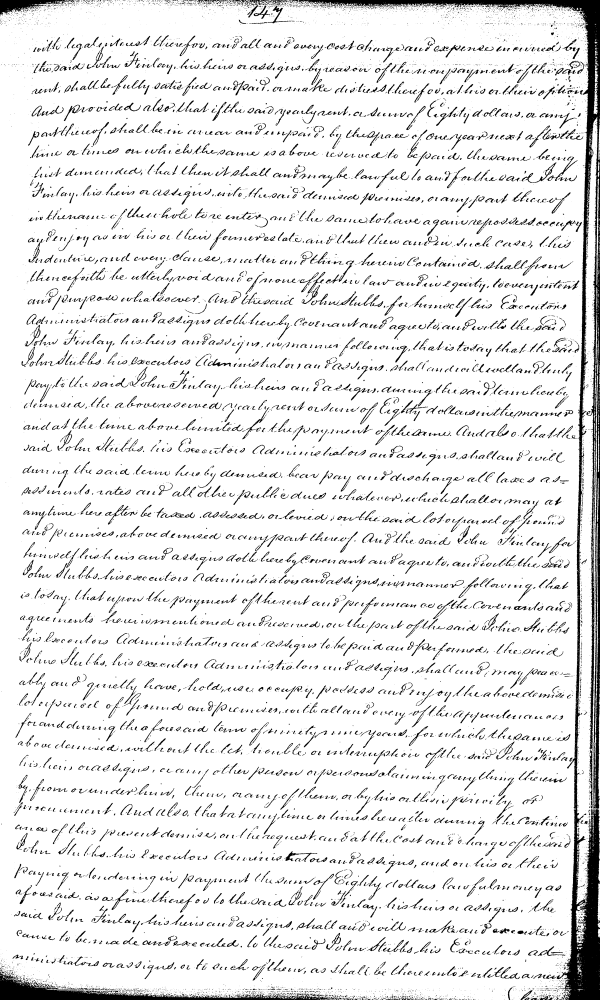 147
with legal interest therefor, and all and every cost charge and expense incurred by
the said John Finlay, his heirs or assigns, by reason of the nonpayment of the said
rent, shall be fully satisfied and paid. or make distress therefor, at his or their option
And provided also, that if the said yearly rent, or sum of Eighty dollars, or any
part thereof, shall be in arrear and unpaid, by the space of one year next after the
time or times on which the same is above reserved to be paid, the same being
first demanded, that then it shall and may be lawful to and for the said John
Finlay, his heirs or assigns, into the said demised premises, or any part thereof
in the name of the whole to re enter, and the same to have again, repossess, occupy
and enjoy as in his or their former estate, and that then and in such case, this
Indenture, and every clause, matter and thing herein Contained, shall from
thenceforth be utterly void and of none effect in law and in equity, to every intent
and purpose whatsoever. And the said John Stubbs, for himself his Executors
Administrators and assigns doth hereby covenant and agree to, and with the said
John Finlay, his heirs and assigns, in manner following, that is to say that the said
John Stubbs his executors Administrators and assigns, shall and will well and truly
pay to the said John Finlay, his heirs and assigns, during the said term hereby
demised, the above reserved yearly rent or sum of Eighty dollars in the manner
and at the time above limited for the payment of the same. And also that the
said John Stubbs, his Executors Administrators and assigns, shall and will
during the said term hereby demised, bear pay and discharge all taxes as=
sessments, rates and all other public dues whatever, which shall or may at
any time here after be taxed, assessed, or levied, on the said lot or parcel of ground
and premises, above demised or any part thereof. And the said John Finlay, for
himself his heirs and assigns doth hereby covenant and agree to, and with the said
John Stubbs, his executors Administrators and assigns, in manner following, that
is to say, that upon the payment of the rent and performance of the Covenants and
agreements herein mentioned and reserved, on the part of the said John Stubbs
his Executors Administrators and assigns to be paid and performed, the said
John Stubbs, his executors Administrators and assigns, shall and may peace=
ably and quietly have, hold, use occupy, possess and enjoy the above demised
lot or parcel of Ground and premises, with all and every of the appurtenances
for and during the aforesaid term of ninety nine years, for which the same is
above demised, without the let, trouble or interruption of the said John Finlay
his heirs or assigns, or any other person or persons claiming any thing therein
by, from or under him, them, or any of them, or by his or their privity or
procurement. And also, that at any time or times hereafter during the Continu
ance of this present demise, on the request and at the cost and charge of the said
John Stubbs his Executors Administrators and assigns, and on his or their
paying or tendering in payment the sum of Eighty dollars lawful money as
aforesaid, as a fine therefor to the said John Finlay, his heirs or assigns, the
said John Finlay, his heirs and assigns, shall and will make and execute, or
cause to be made and executed, to the said John Stubbs, his Executors ad=
ministrators or assigns, or to such of them, as shall be thereunto entitled a new